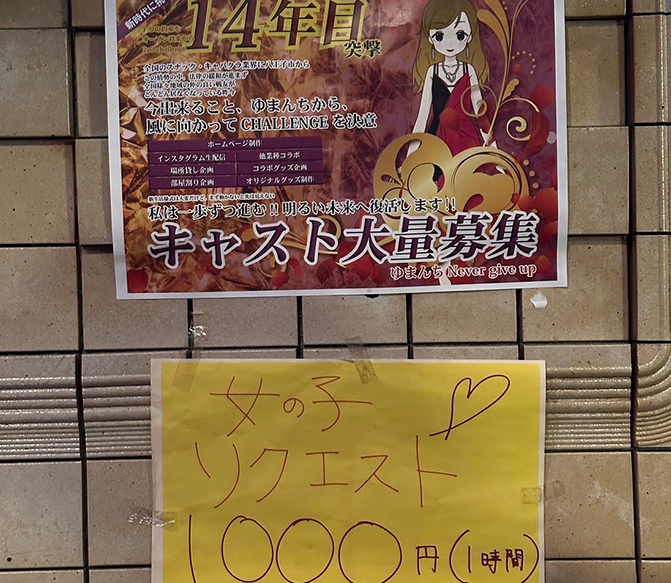 新時代に挑
14年目
突撃
2nd challenge
全国のスナック・キャバクラ業界に八王子市から
この情勢の中、法律の緩和が進まず
全国様々地域の仲の良い戦友が
どんどん居なくなっている昨今
今出来ること、ゆまんちから、
風に向かって CHALLENGE を決意
ホームページ制作
インスタグラム生配信 他業種コラボ
場所貸し企画 コラボグッズ企画
部屋割り企画 オリジナルグッズ制作
私は一歩ずつ進む!! 明るい未来へ復活します!!
キャスト大量募集
ゆまんち Never give up
女の子
リクエスト
1000円(1時間)